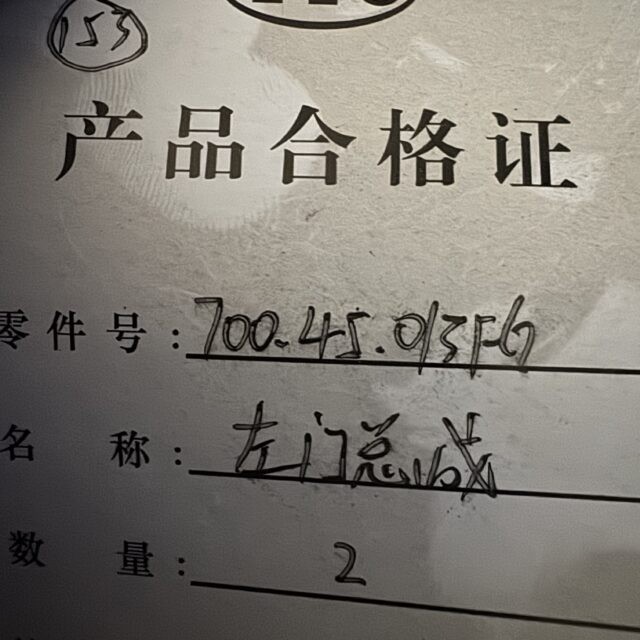 153
产品合格证
零件号: 700-45.013F-G
名称: 左门总成
数量: 2